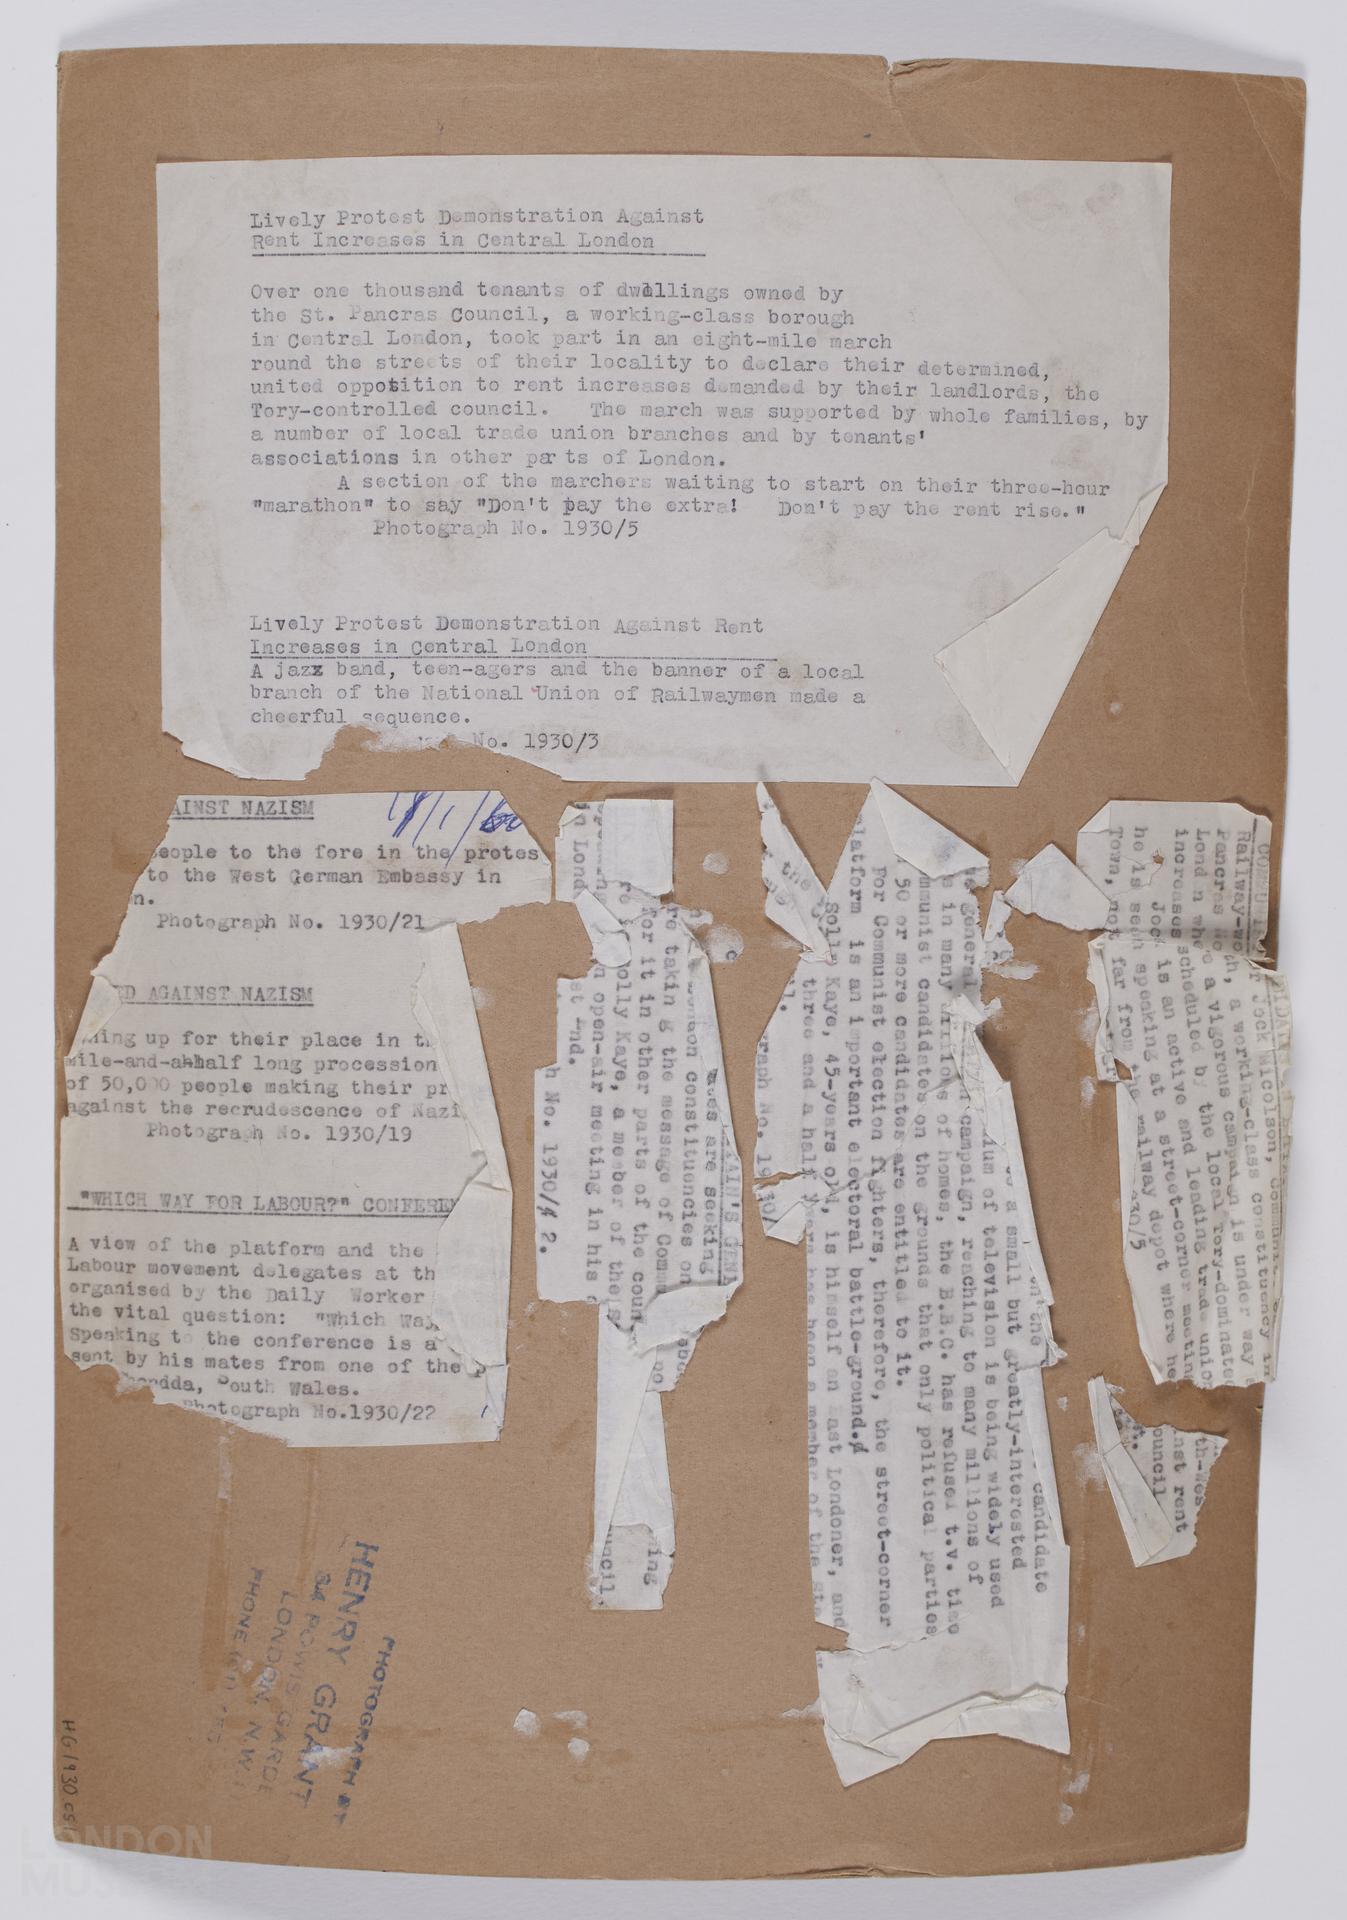 Lively Protest Demonstration Against
Rent Increases in Central London
Over one thousand tenants of dwellings owned by
the St. Pancras Council, a working-class borough
in Central London, took part in an eight-mile march
round the streets of their locality to declare their determined,
united oppotition to rent increases demanded by their landlords, the
Tory-controlled council. The march was supported by whole families, by
a number of local trade union branches and by tenants'
associations in other pa ts of London.
A section of the marchers waiting to start on their three-hour
"marathon" to say "Don't pay the extra! Don't pay the rent rise."
Photograph No. 1930/5
Lively Protest Demonstration Against Rent
Increases in Central London
A jazz band, teen-agers and the banner of a local
branch of the National Union of Railwaymen made a
cheerful sequence.
No. 1930/3
AINST NAZISM
people to the fore in the protes
to the West German Embassy in
n.
Photograph No. 1930/21
ED AGAINST NAZISM
ning up for their place in t
mile-and-ahhalf long procession
of 50,000 people making their pr
against the recrudescence of Nazi
Photograph No. 1930/19
"WHICH WAY FOR LABOUR?" CONFEREN
A view of the platform and the
Labour movement delegates at th
organised by the Daily Worker
the vital question: "Which Way
Speaking to the conference is a
sent by his mates from one of the
hondda, South Wales.
Photograph No.1930/22
AIN'S GEN
ates are seeking
ondon constituencies on
re takin g the message of Commu
for it in other parts of the coun
olly Kaye, a member of the S
n open-air meeting in his
st End.
h No. 1930/ 2.
in Lond
ning
uncil.
candidate
a small but greatly-interested
ium of television is being widely used
general campaign, reaching to many millions of
s in many millions of homes, the B.B.C. has refused t.v. time
mmunist candidates on the grounds that only political parties
50 or more candidates are entitled to it.
For Communist election fighters, therefore, the street-corner
platform is an important electoral battle-ground.
Solly Kaye, 45-years old, is himself an East Londoner, and
three and a half years has been a member of the Ste
il.
graph No. 1930/
on the
or Jock Nicolson, Communi
Railway-wo
Pancras No th, a working-class constituency in
Lond n whe e a vigorous campaign is under way a
increases scheduled by the local Tory-dominated
Jock is an active and leading trade union
he is seen speaking at a street-corner meeting
Town, not far from the railway depot where he
930/5
th-Wes
nst rent
ouncil
st.
PHOTOGRAPH BY
HENRY GRANT
34 POWIS GARDE
LONDON. N.W.11
PHONE
HG1930.05
LONDON
MUSEUM